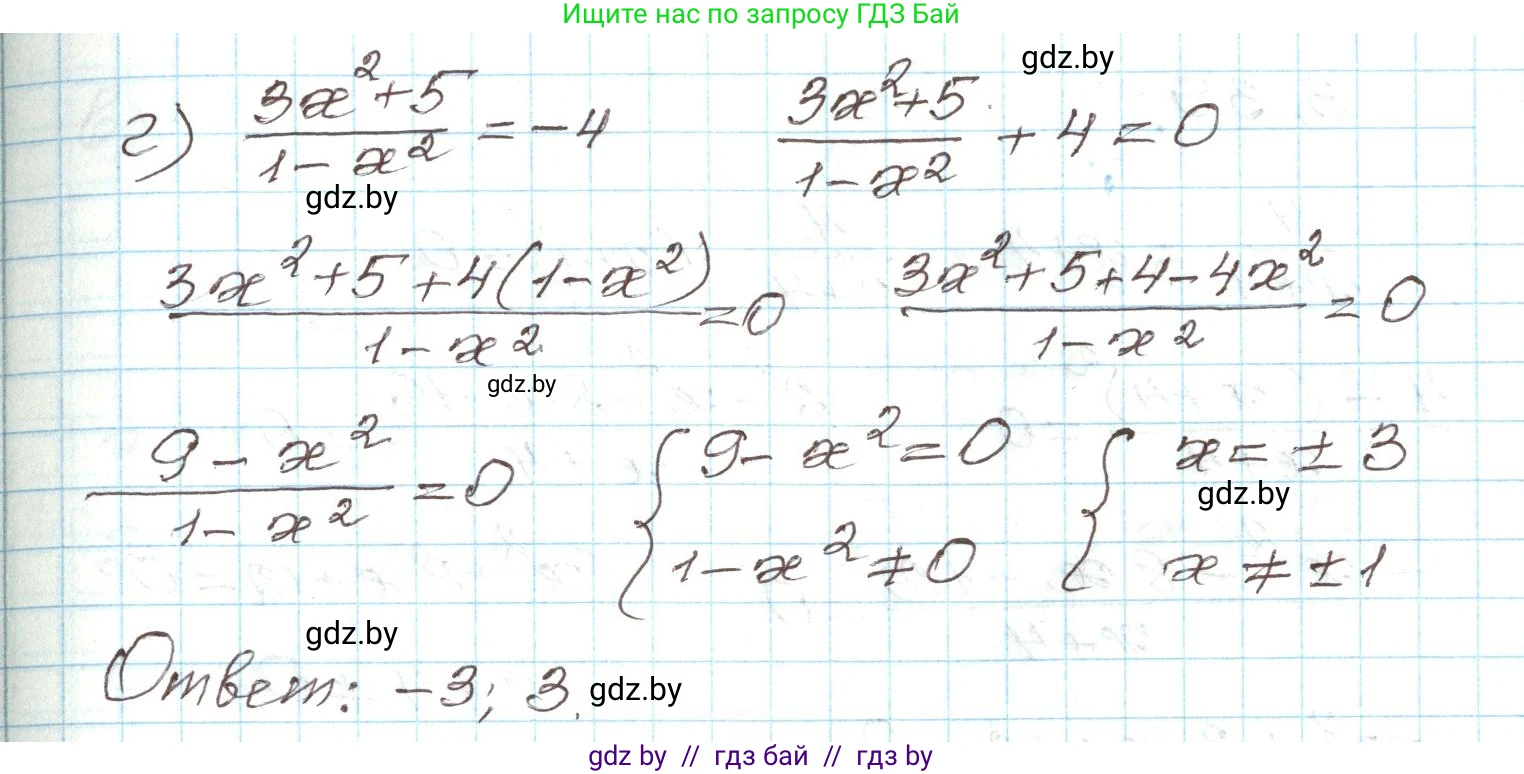 Ищите нас по запросу ГДЗ Бай
gdz.by
г) (3x²+5)/(1-x²) = -4   (3x²+5)/(1-x²) + 4 = 0
gdz.by
(3x²+5+4(1-x²))/(1-x²) = 0   (3x²+5+4-4x²)/(1-x²) = 0
gdz.by
(9-x²)/(1-x²) = 0   { 9-x²=0   { x=±3
gdz.by
1-x²≠0   x≠±1
gdz.by
Ответ: -3; 3.
gdz.by
gdz by // гдз бай // гдз by